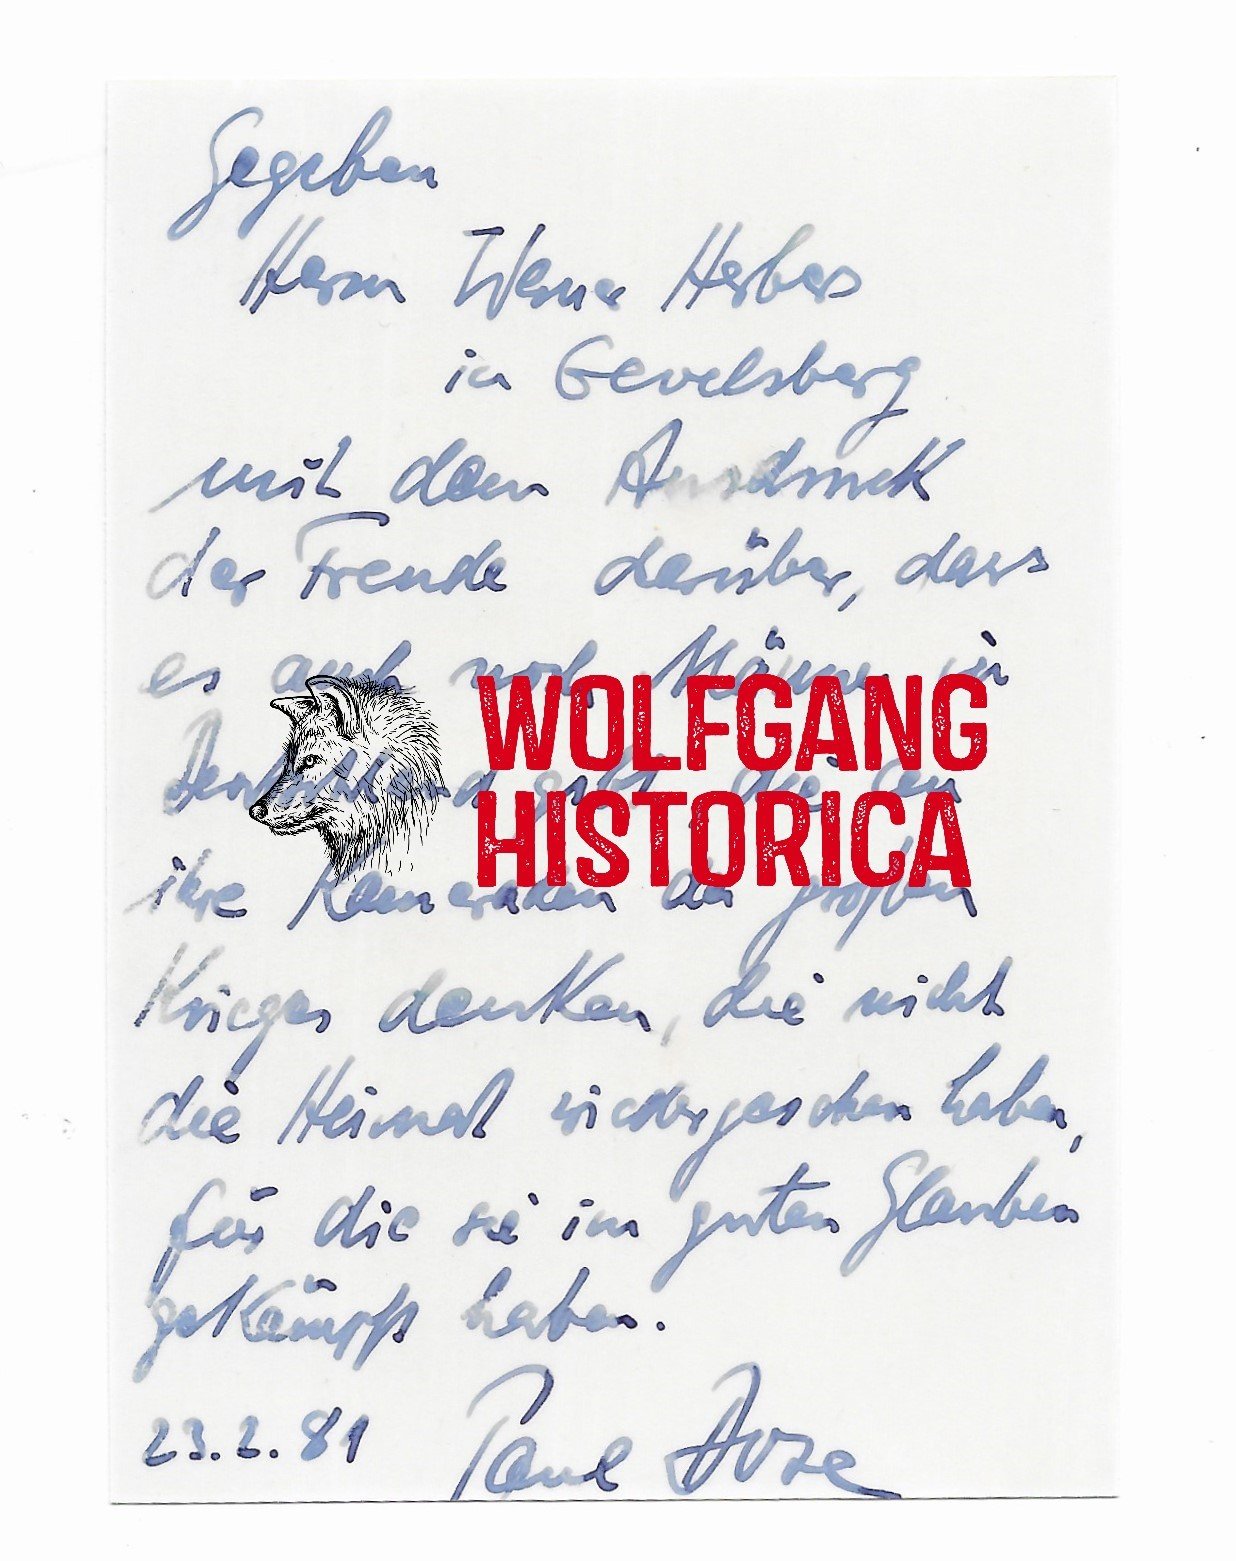 Gegeben
Herrn Werner Herbers
in Gevelsberg
mit dem Ausdruck
der Freude darüber, dass
es auch noch Männer in
WOLFGANG
Deutschland gibt die an
HISTORICA
ihre Kameraden des großen
Krieges denken, die nicht
die Heimat wiedergesehen haben,
für die sie im guten Glauben
gekämpft haben.
23.2.81 Paul